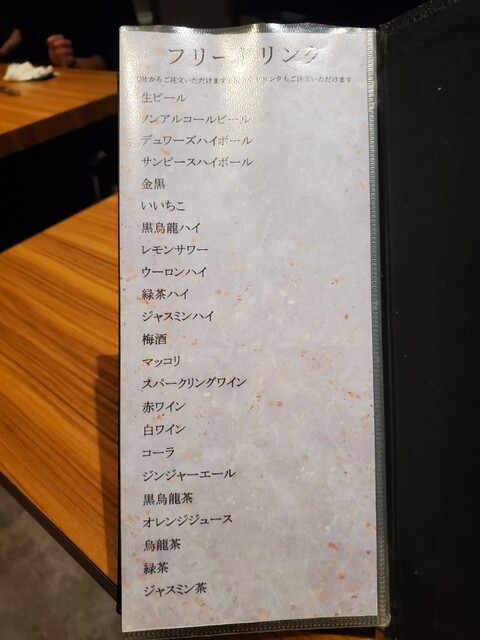 フリードリンク
QRからご注文いただけます
リンクもご注文いただけます
生ビール
ノンアルコールビール
デュワーズハイボール
サンピースハイボール
金黒
いいちこ
黒烏龍ハイ
レモンサワー
ウーロンハイ
緑茶ハイ
ジャスミンハイ
梅酒
マッコリ
スパークリングワイン
赤ワイン
白ワイン
コーラ
ジンジャーエール
黒烏龍茶
オレンジジュース
烏龍茶
緑茶
ジャスミン茶